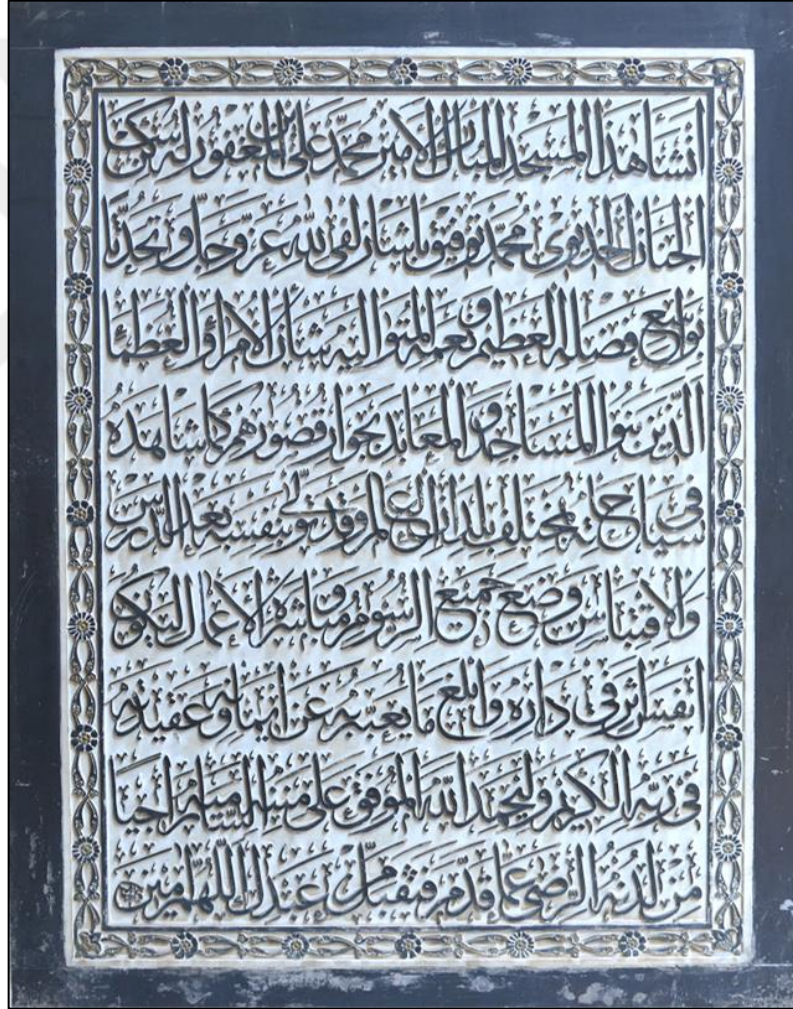 أنشأ هذا المسجد المبارك الأمير محمد على ابن المغفور له ساكن
الجنان الخديوى محمد توفيق باشا زلفى لله عز وجل وتحدثا
بواسع فضله العظيم ونعمه المتوالية شأن الأمراء والعظماء
الذين بنوا المساجد والمعابد بجوار قصورهم كما شاهده
فى سياحاته بمختلف بلدان العالم وقد تولى بنفسه بعد الدرس
والاقتباس وضع جميع الرسوم ومباشرة الأعمال ليكون
أنفس أثر فى داره وأبلغ ما يعبر به عن إيمانه وعقيدته
فى ربه الكريم وليحمد الله الموفق على مننه السامية راجيا
من لدنه الرضى عما قدم فتقبل من عبدك اللهم امين